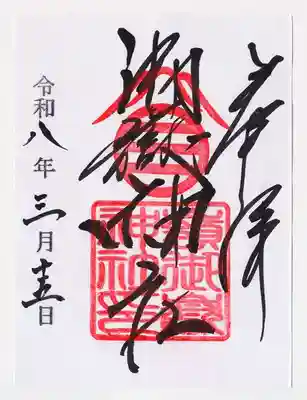 奉拝
御嶽神社
令和八年三月十五日